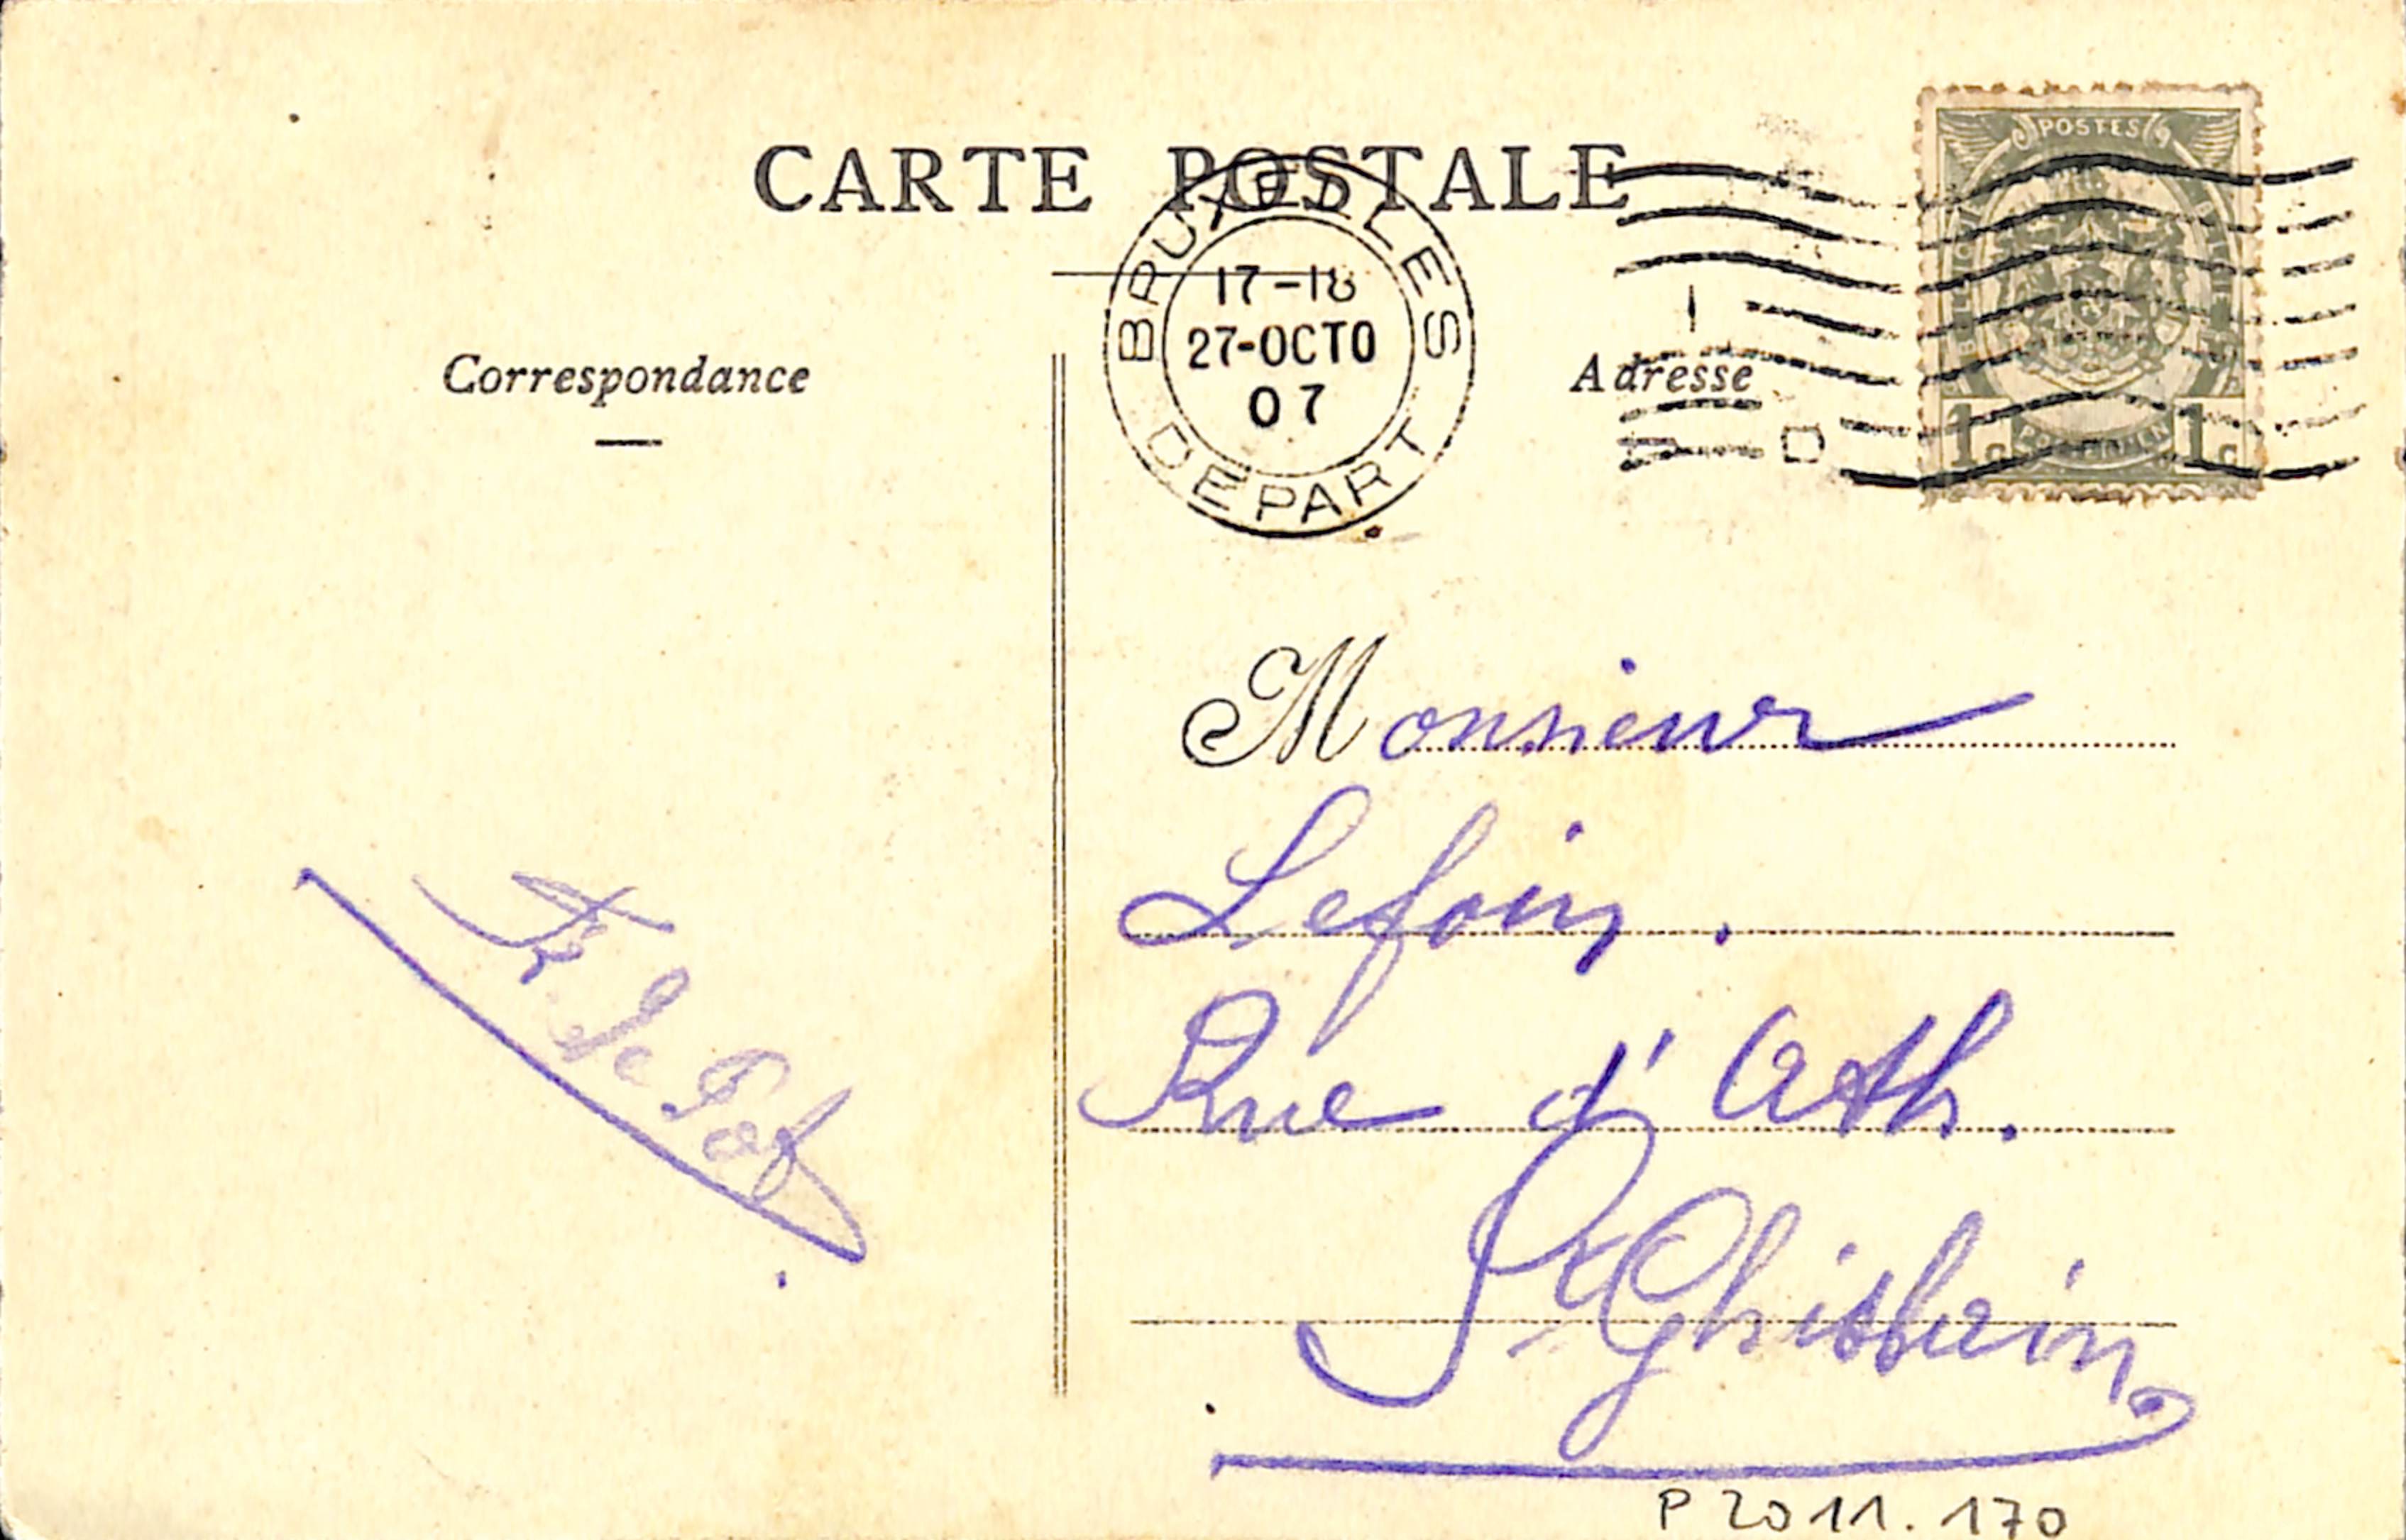 CARTE POSTALE
BRUXELLES
17-18
27-OCTO
07
DEPART
POSTES
1c 1c
Correspondance
Adresse
Monsieur
Lefoin.
Rue d'Ath.
St Ghislain
P2011.170